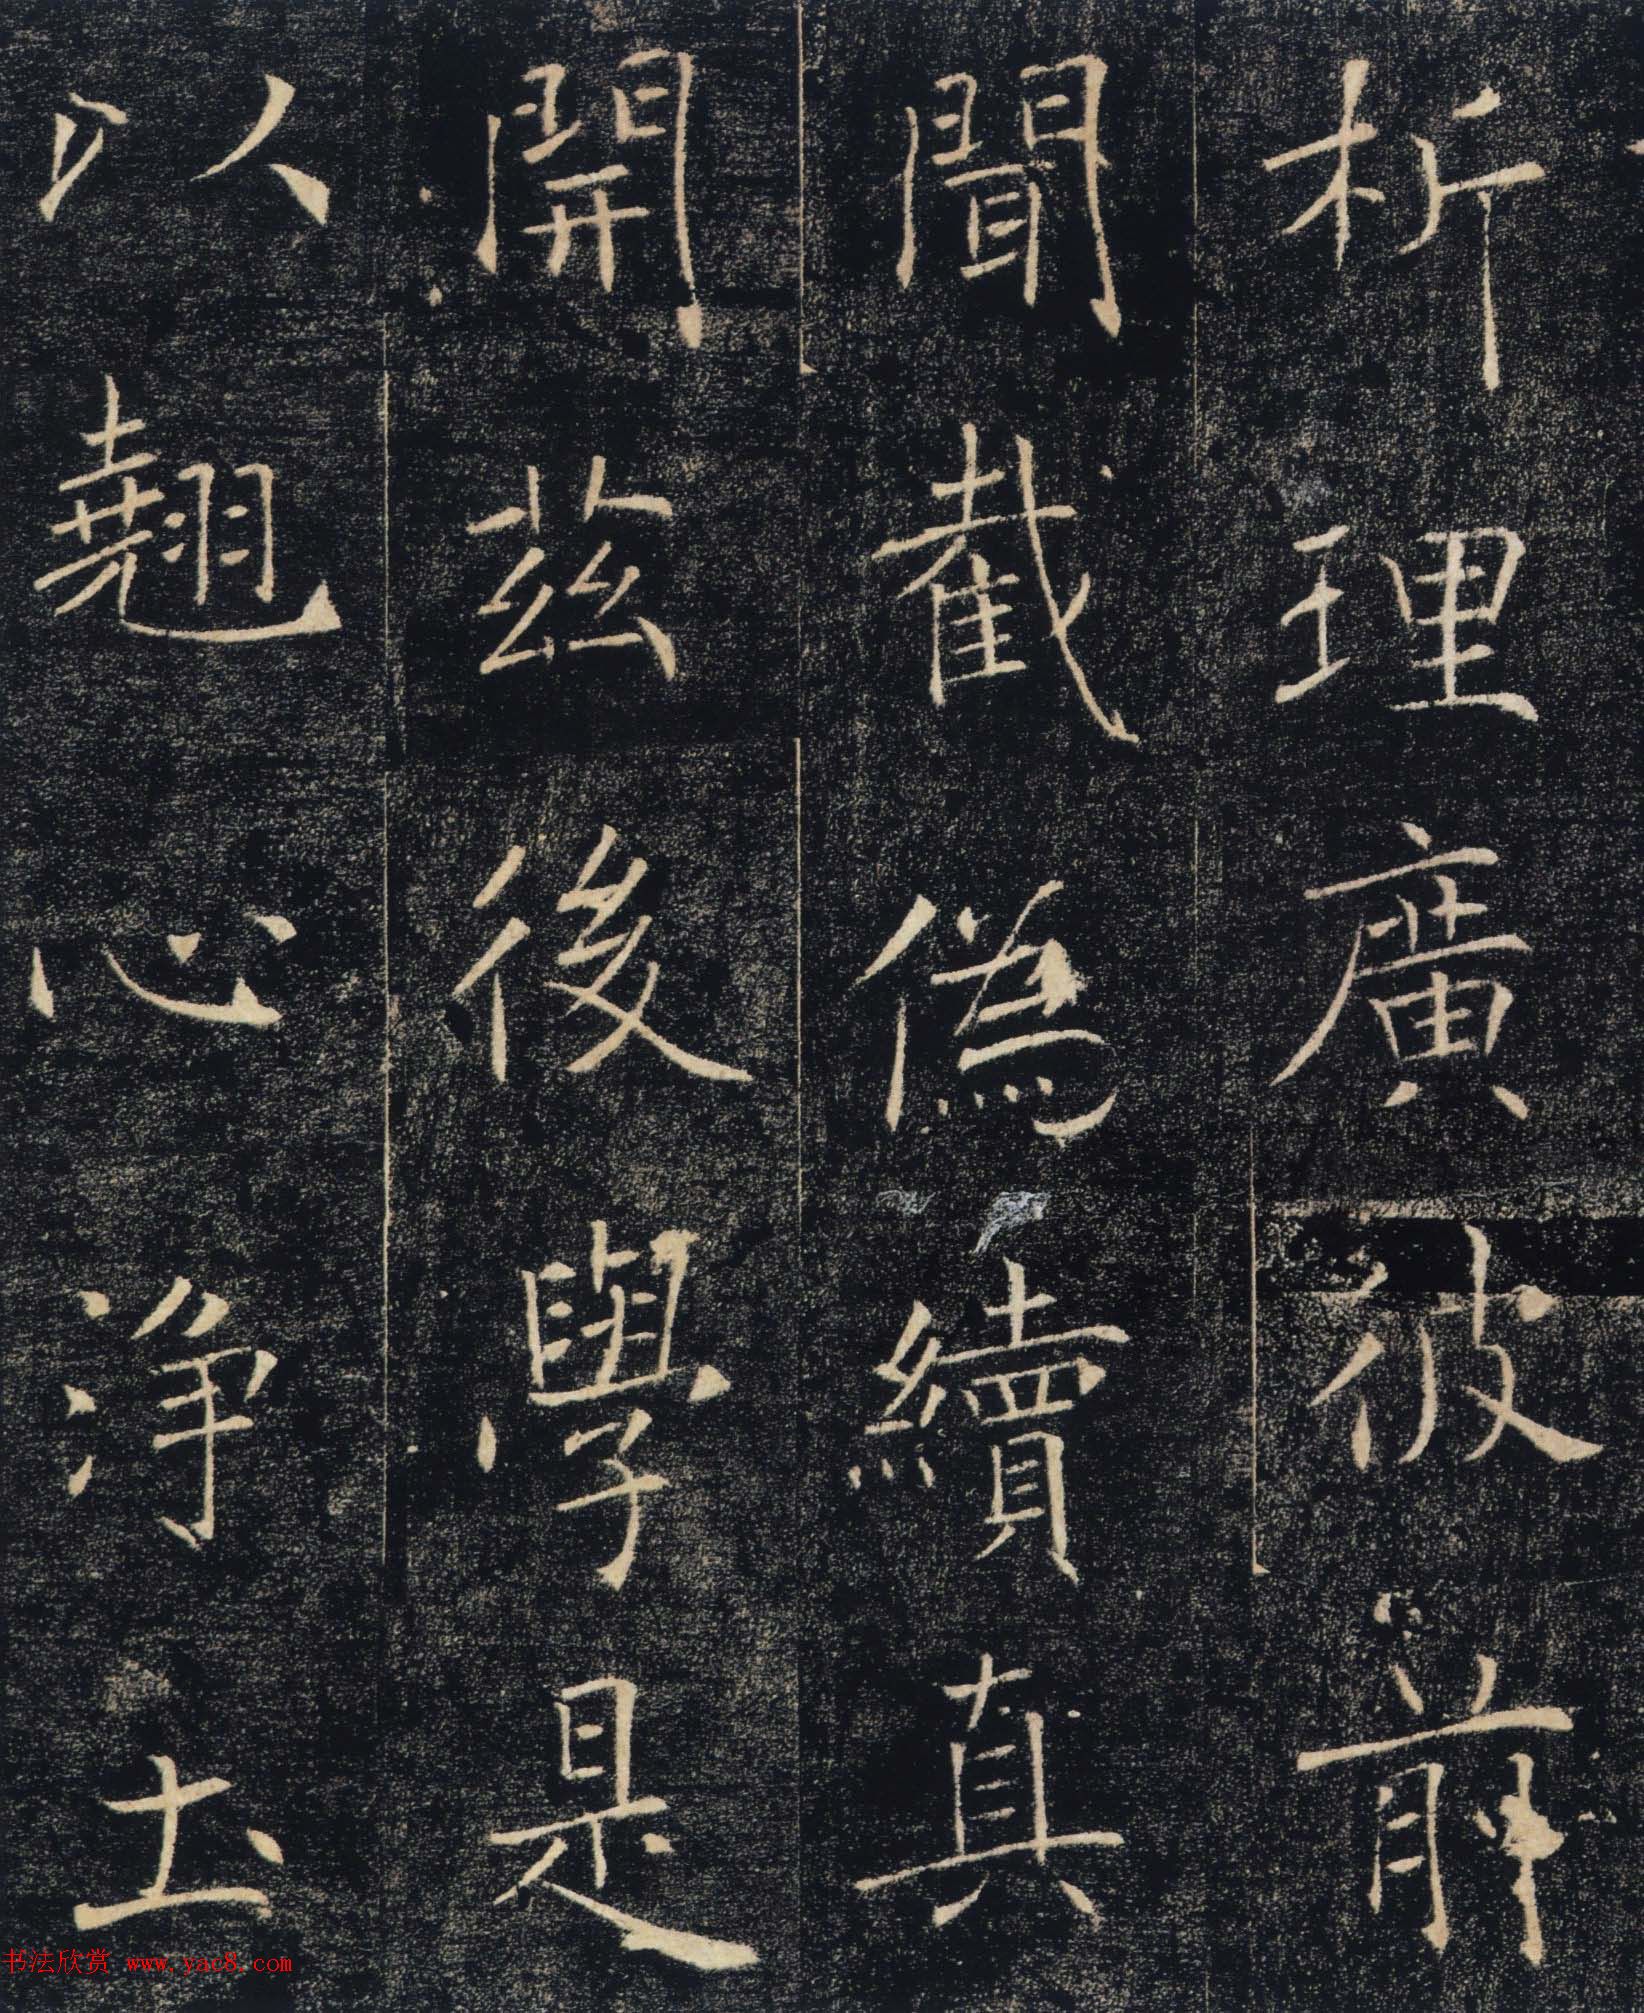 析理廣彼前
聞截偽續真
開茲後學是
以翹心淨土
书法欣赏 www.yac8.com